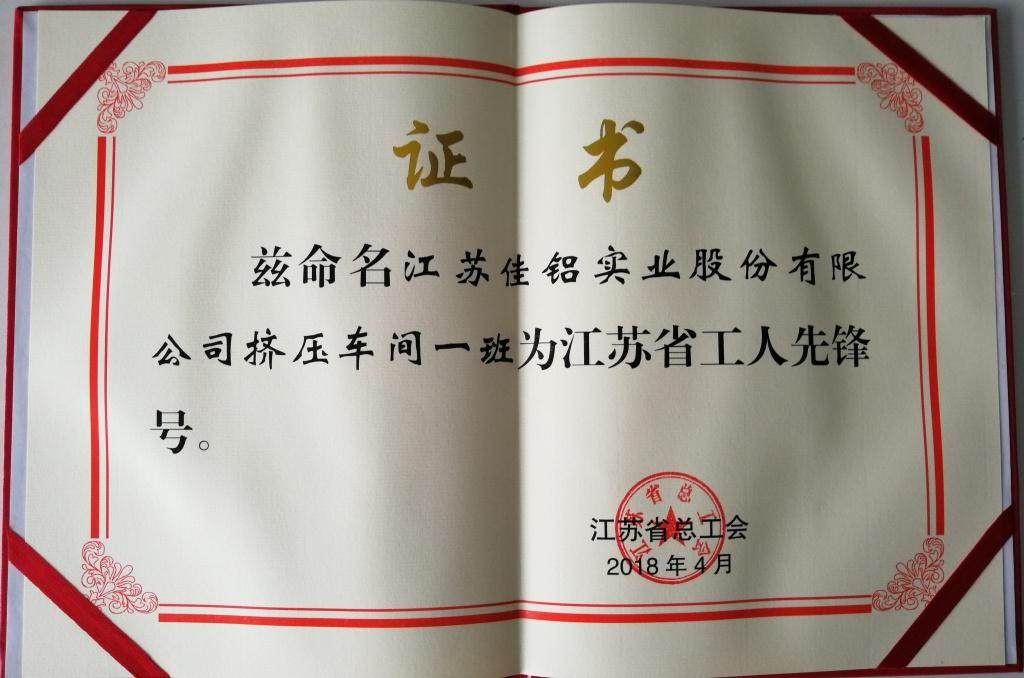 证书
兹命名江苏佳铝实业股份有限
公司挤压车间一班为江苏省工人先锋
号。
江苏省总工会
江苏省总工会
2018年4月